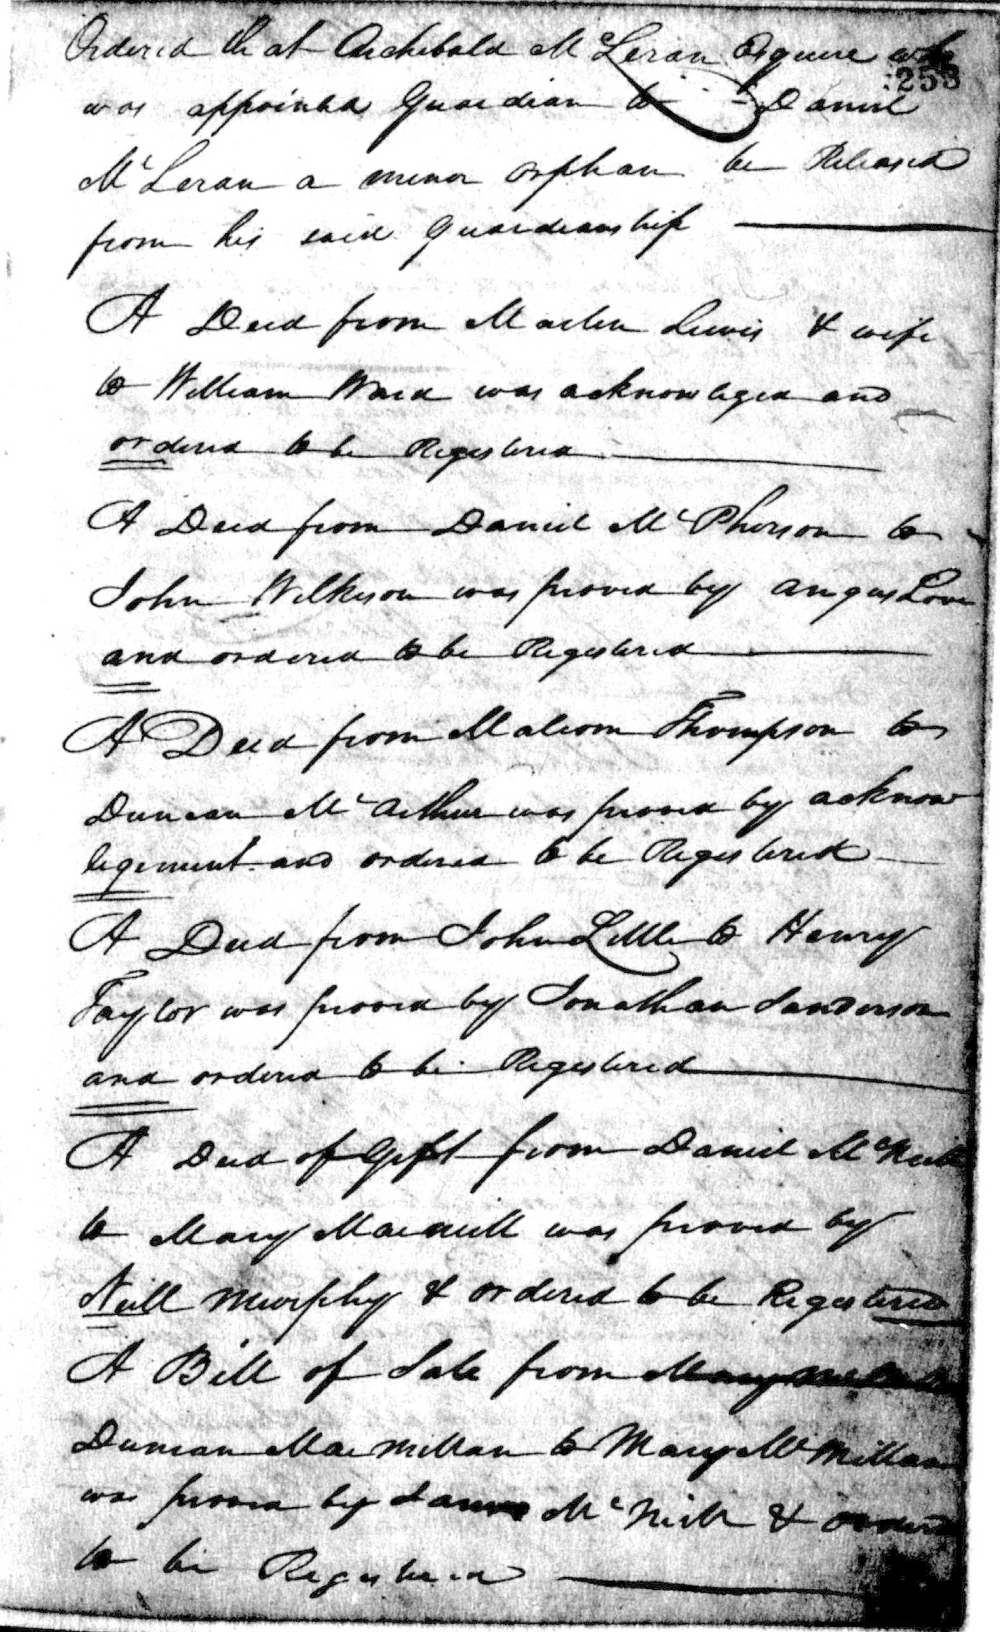 Ordered that Archebald McLeran Esquire who
253
was appointed Guardian to Daniel
McLeran a minor orphan be Released
from his said Guardianship
A Deed from Marten Lewis & wife
to William Ward was acknowleged and
ordered to be Registered
A Deed from Daniel McPherson to
John Wilkeson was proved by Angus Love
and ordered to be Registered
A Deed from Malcom Thompson to
Duncan McArthur was proved by acknow
legement and ordered to be Registered
A Deed from John Little to Henry
Taylor was proved by Jonathan Sanderson
and ordered to be Registered
A Deed of Gift from Daniel McNeill
to Mary Macneill was proved by
Neill Murphey & ordered to be Registered
A Bill of Sale from Mary
Duncan MacMillan to Mary McMillan
was proved by James McNeill & ordered
to be Registered